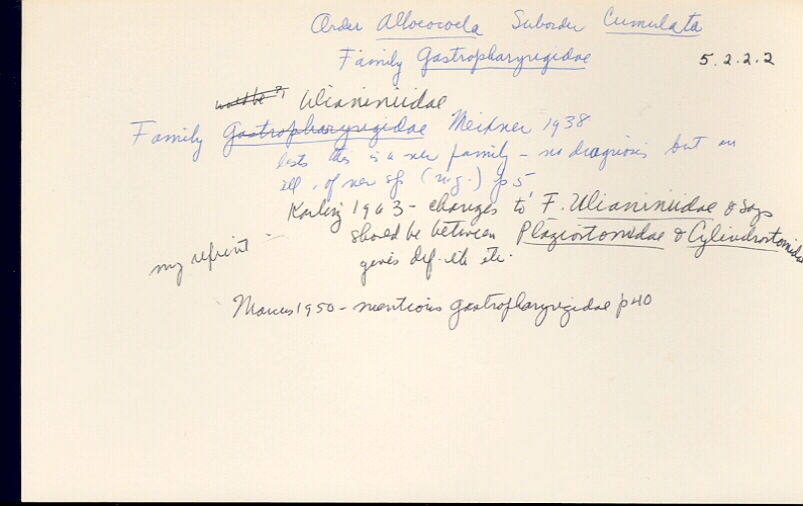 Order Alloeocoela Suborder Cumulata
Family Gastropharyngidae
5.2.2.2
would be ?) Ulianiniidae
Family Gastropharyngidae Meixner 1938
lists this is a new family - no diagnosis but an
ill. of new sp (n.g.) p 5
Karling 1963 - changes to F. Ulianiniidae & says
should be between Plagiostomidae & Cylindrostomidae
my reprint -
gives def. etc etc.
Marcus 1950 - mentions gastropharyngidae p 40